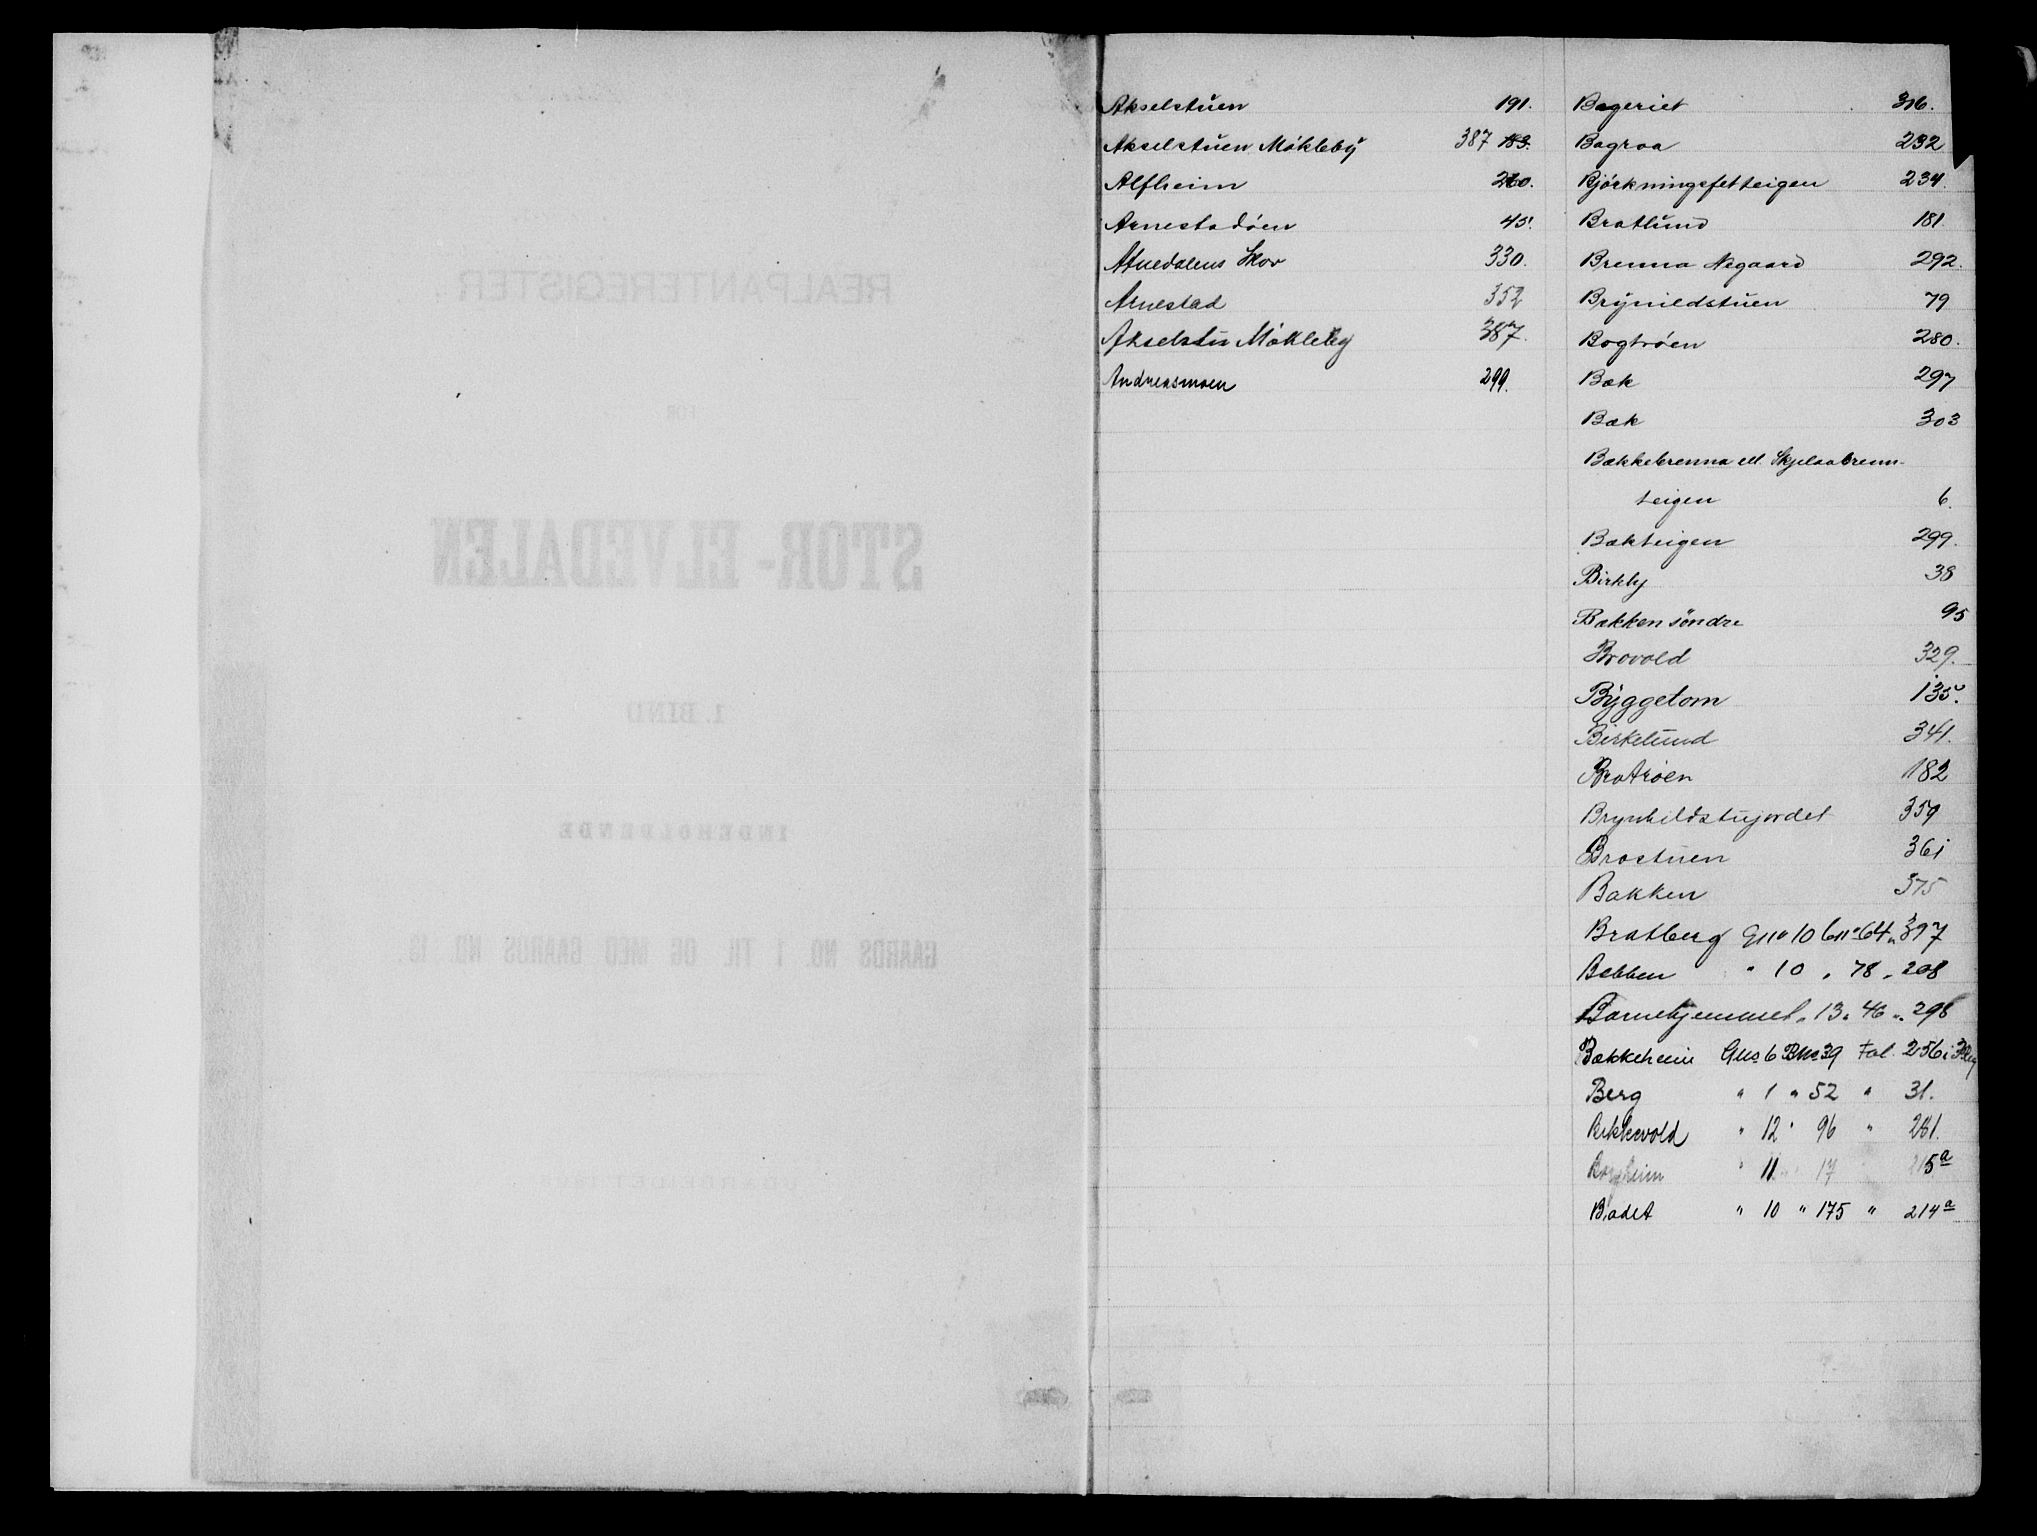 REALPANTEREGISTER
FOR
STOR-ELVEDALEN
1. BIND
INDEHOLDENDE
GAARDS NO. 1 TIL OG MED GAARDS NO. 13.
Akselstuen 191.
Akselstuen Mökleby 387 183.
Alfheim 260.
Arnestadöen 45.
Atnedalens Skov 330.
Arnestad 352
Akselstu Mökleby 387.
Andreasmoen 299.
Bageriet 316.
Bagroa 232
Björkningsfetteigen 234.
Bratlund 181.
Brenna Negaard 292.
Brynildstuen 79
Bogtröen 280.
Bæk 297
Bæk 303
Bækkebrenna ell. Skjelaabrenn-
teigen 6.
Bækteigen 299.
Birkly 38
Bakken söndre 95
Brovold 329.
Byggetom 135.
Birkelund 341.
Bratröen 182
Brynhildstujordet 359
Brostuen 361
Bakken 375
Bratberg Gno 10 bno 64 „ 397
Bebben " 10 „ 78 „ 208
Barnehjemmet „ 13 „ 46 „ 298
Bækkeheim Gno 6 Bno 39 Fol. 256 i
Berg " 1 " 52 " 31.
Birkevold " 12 " 96 " 281.
Borgheim " 11 " 17 215a
Badet " 10 " 175 " 214a